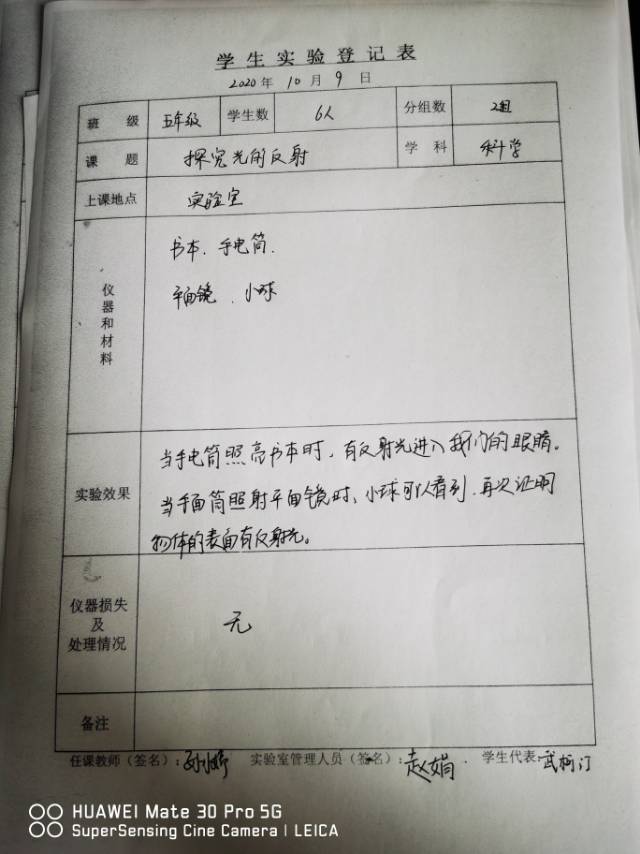 学生实验登记表
2020年10月9日
班 级 五年级 学生数 6人 分组数 2组
课 题 探究光的反射 学 科 科学
上课地点 实验室
仪器和材料
书本、手电筒、
平面镜、小球
实验效果
当手电筒照亮书本时,有反射光进入我们的眼睛。
当手面筒照射平面镜时、小球可以看到,再次证明
物体的表面有反射光。
仪器损失
及
处理情况
无
备注
任课教师(签名): 实验室管理人员(签名):赵娟 学生代表:武柯汀
HUAWEI Mate 30 Pro 5G
SuperSensing Cine Camera | LEICA